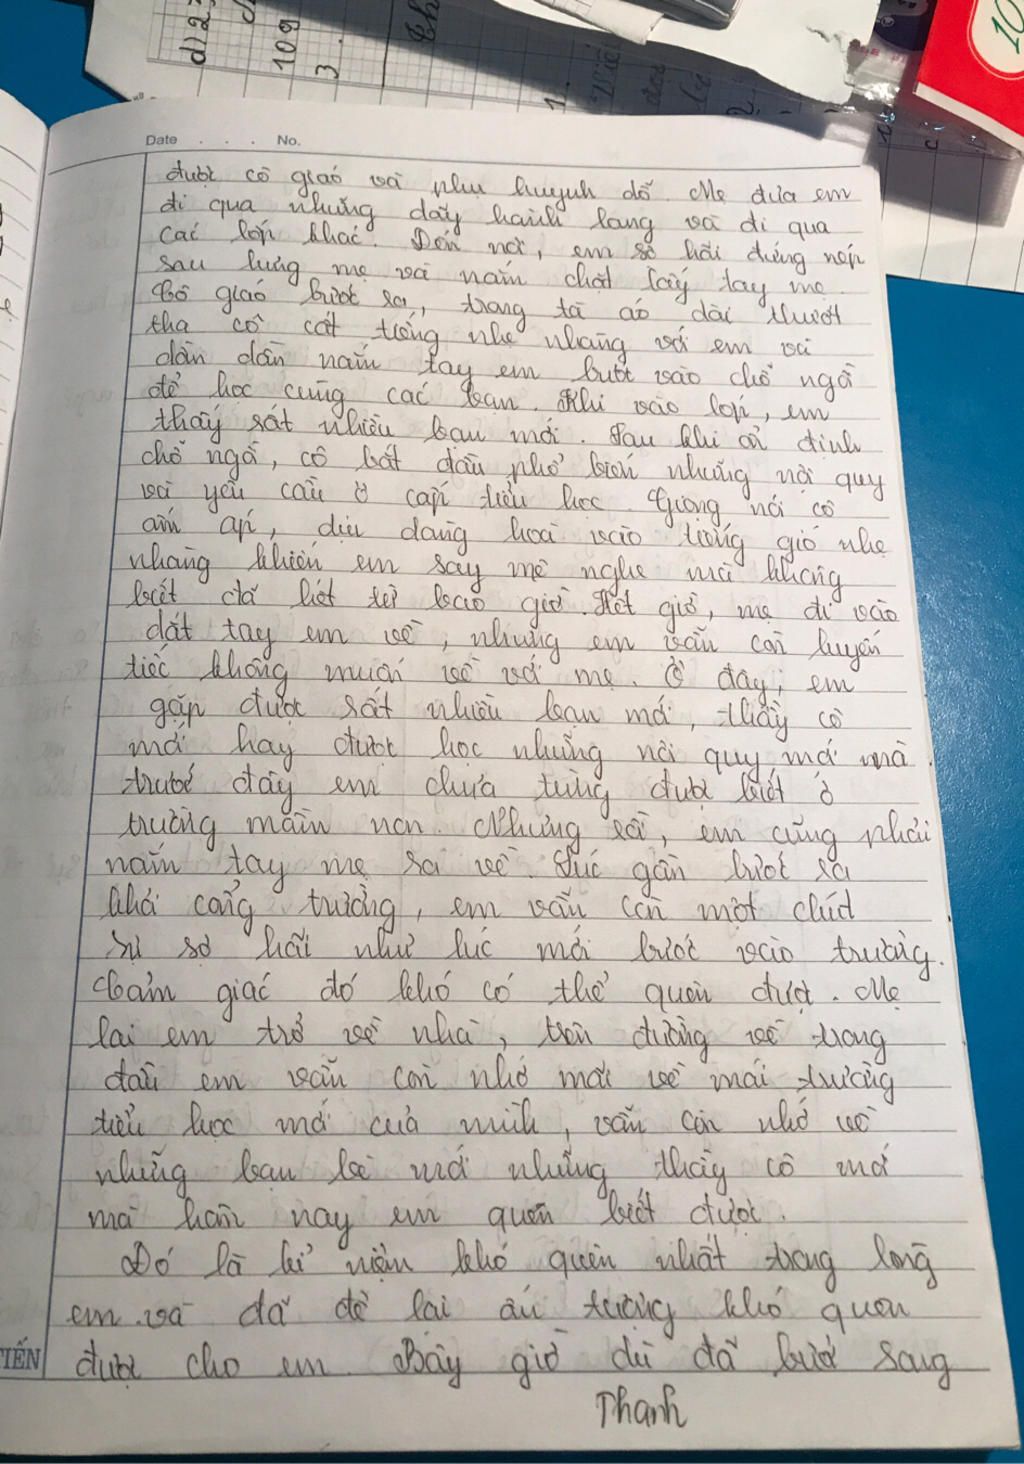 Date . . . . No.
được cô giáo và phụ huynh dỗ. Mẹ đưa em
đi qua những dãy hành lang và đi qua
các lớp khác. Đến nơi, em sợ hãi đứng nép
sau lưng mẹ và nắm chặt lấy tay mẹ.
Cô giáo bước ra, trong tà áo dài thướt
tha cô cất tiếng nhẹ nhàng với em và
dần dần nắm tay em bước vào chỗ ngồi
để học cùng các bạn. Khi vào lớp, em
thấy rất nhiều bạn mới. Sau khi ổn định
chỗ ngồi, cô bắt đầu phổ biến những nội quy
và yêu cầu ở cấp tiểu học. Giọng nói cô
ấm áp, dịu dàng hoà vào tiếng gió nhẹ
nhàng khiến em say mê nghe mà không
biết đã hết từ bao giờ. Hết giờ, mẹ đi vào
dắt tay em về, nhưng em vẫn còn luyến
tiếc không muốn về với mẹ. Ở đây, em
gặp được rất nhiều bạn mới, thầy cô
mới hay được học những nội quy mới mà
trước đây em chưa từng được biết ở
trường mầm non. Nhưng rồi, em cũng phải
nắm tay mẹ ra về. Lúc gần bước ra
khỏi cổng trường, em vẫn còn một chút
sự sợ hãi như lúc mới bước vào trường.
Cảm giác đó khó có thể quên được. Mẹ
lai em trở về nhà, trên đường về trong
đầu em vẫn còn nhớ mãi về mái trường
tiểu học mới của mình, vẫn còn nhớ về
những bạn bè mới những thầy cô mới
mà hôm nay em quen biết được.
Đó là kỉ niệm khó quên nhất trong lòng
em và đã để lại ấn tượng khó quên
được cho em. Bây giờ dù đã bước sang
TIẾN
Thanh